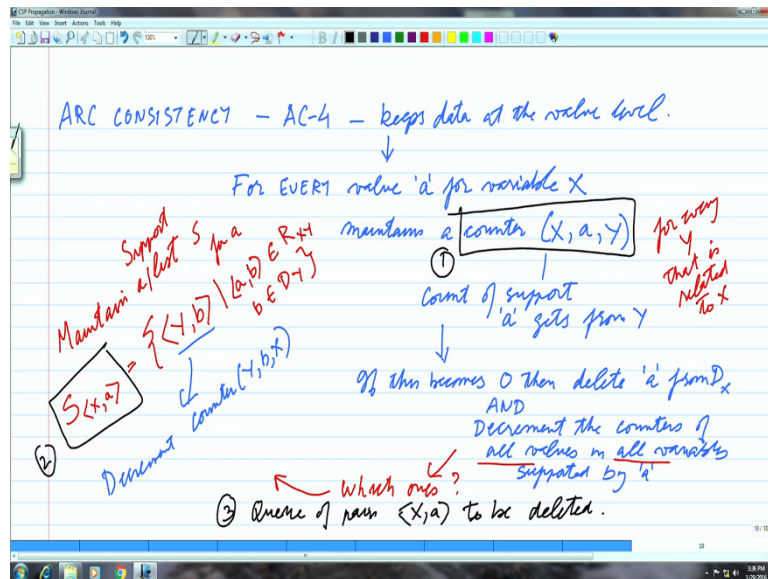 CSP Propagation - Windows Journal
File Edit View Insert Actions Tools Help
ARC CONSISTENCY - AC-4 - keeps data at the value level.
↓
For EVERY value 'a' for variable X
maintains a counter (X, a, Y)
①
for every
Y
that is
related
to X
Count of support
'a' gets from Y
↓
If this becomes 0 then delete 'a' from Dx
AND
Decrement the counters of
all values in all variables
supported by 'a'
which ones?
Support
Maintain a list S for a
S<x,a> = {<Y,b> | <a,b> ∈ RXY
b ∈ DY}
②
Decrement counter (Y, b, X)
③ Queue of pairs <X,a> to be deleted.
10 / 10
10
3:36 PM
1/29/2016